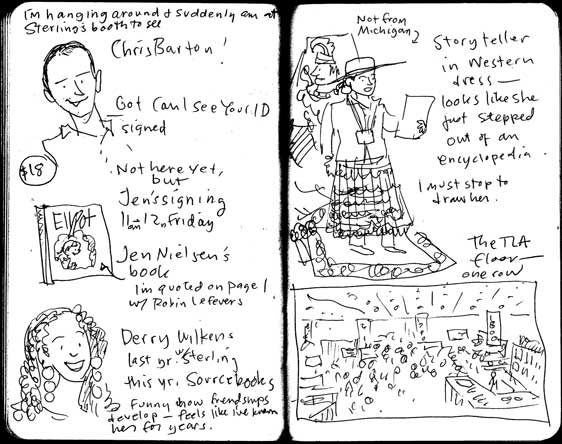 I'm hanging around & suddenly am at
Sterling's booth to see
Chris Barton!
Got Can I See Your ID
signed
$18
Not here yet,
but
Jen's signing
11am-12n, Friday
Elliot
Jen Nielsen's
book
I'm quoted on page 1
w/ Robin Lefevers
Derry Wilkens
last yr. w/ Sterling
this yr. Source books
Funny how friendships
develop — feels like I've known
her for years.
Not from
Michigan
Storyteller
in Western
dress —
looks like she
just stepped
out of an
encyclopedia.
I must stop to
draw her.
The TLA
floor —
one row